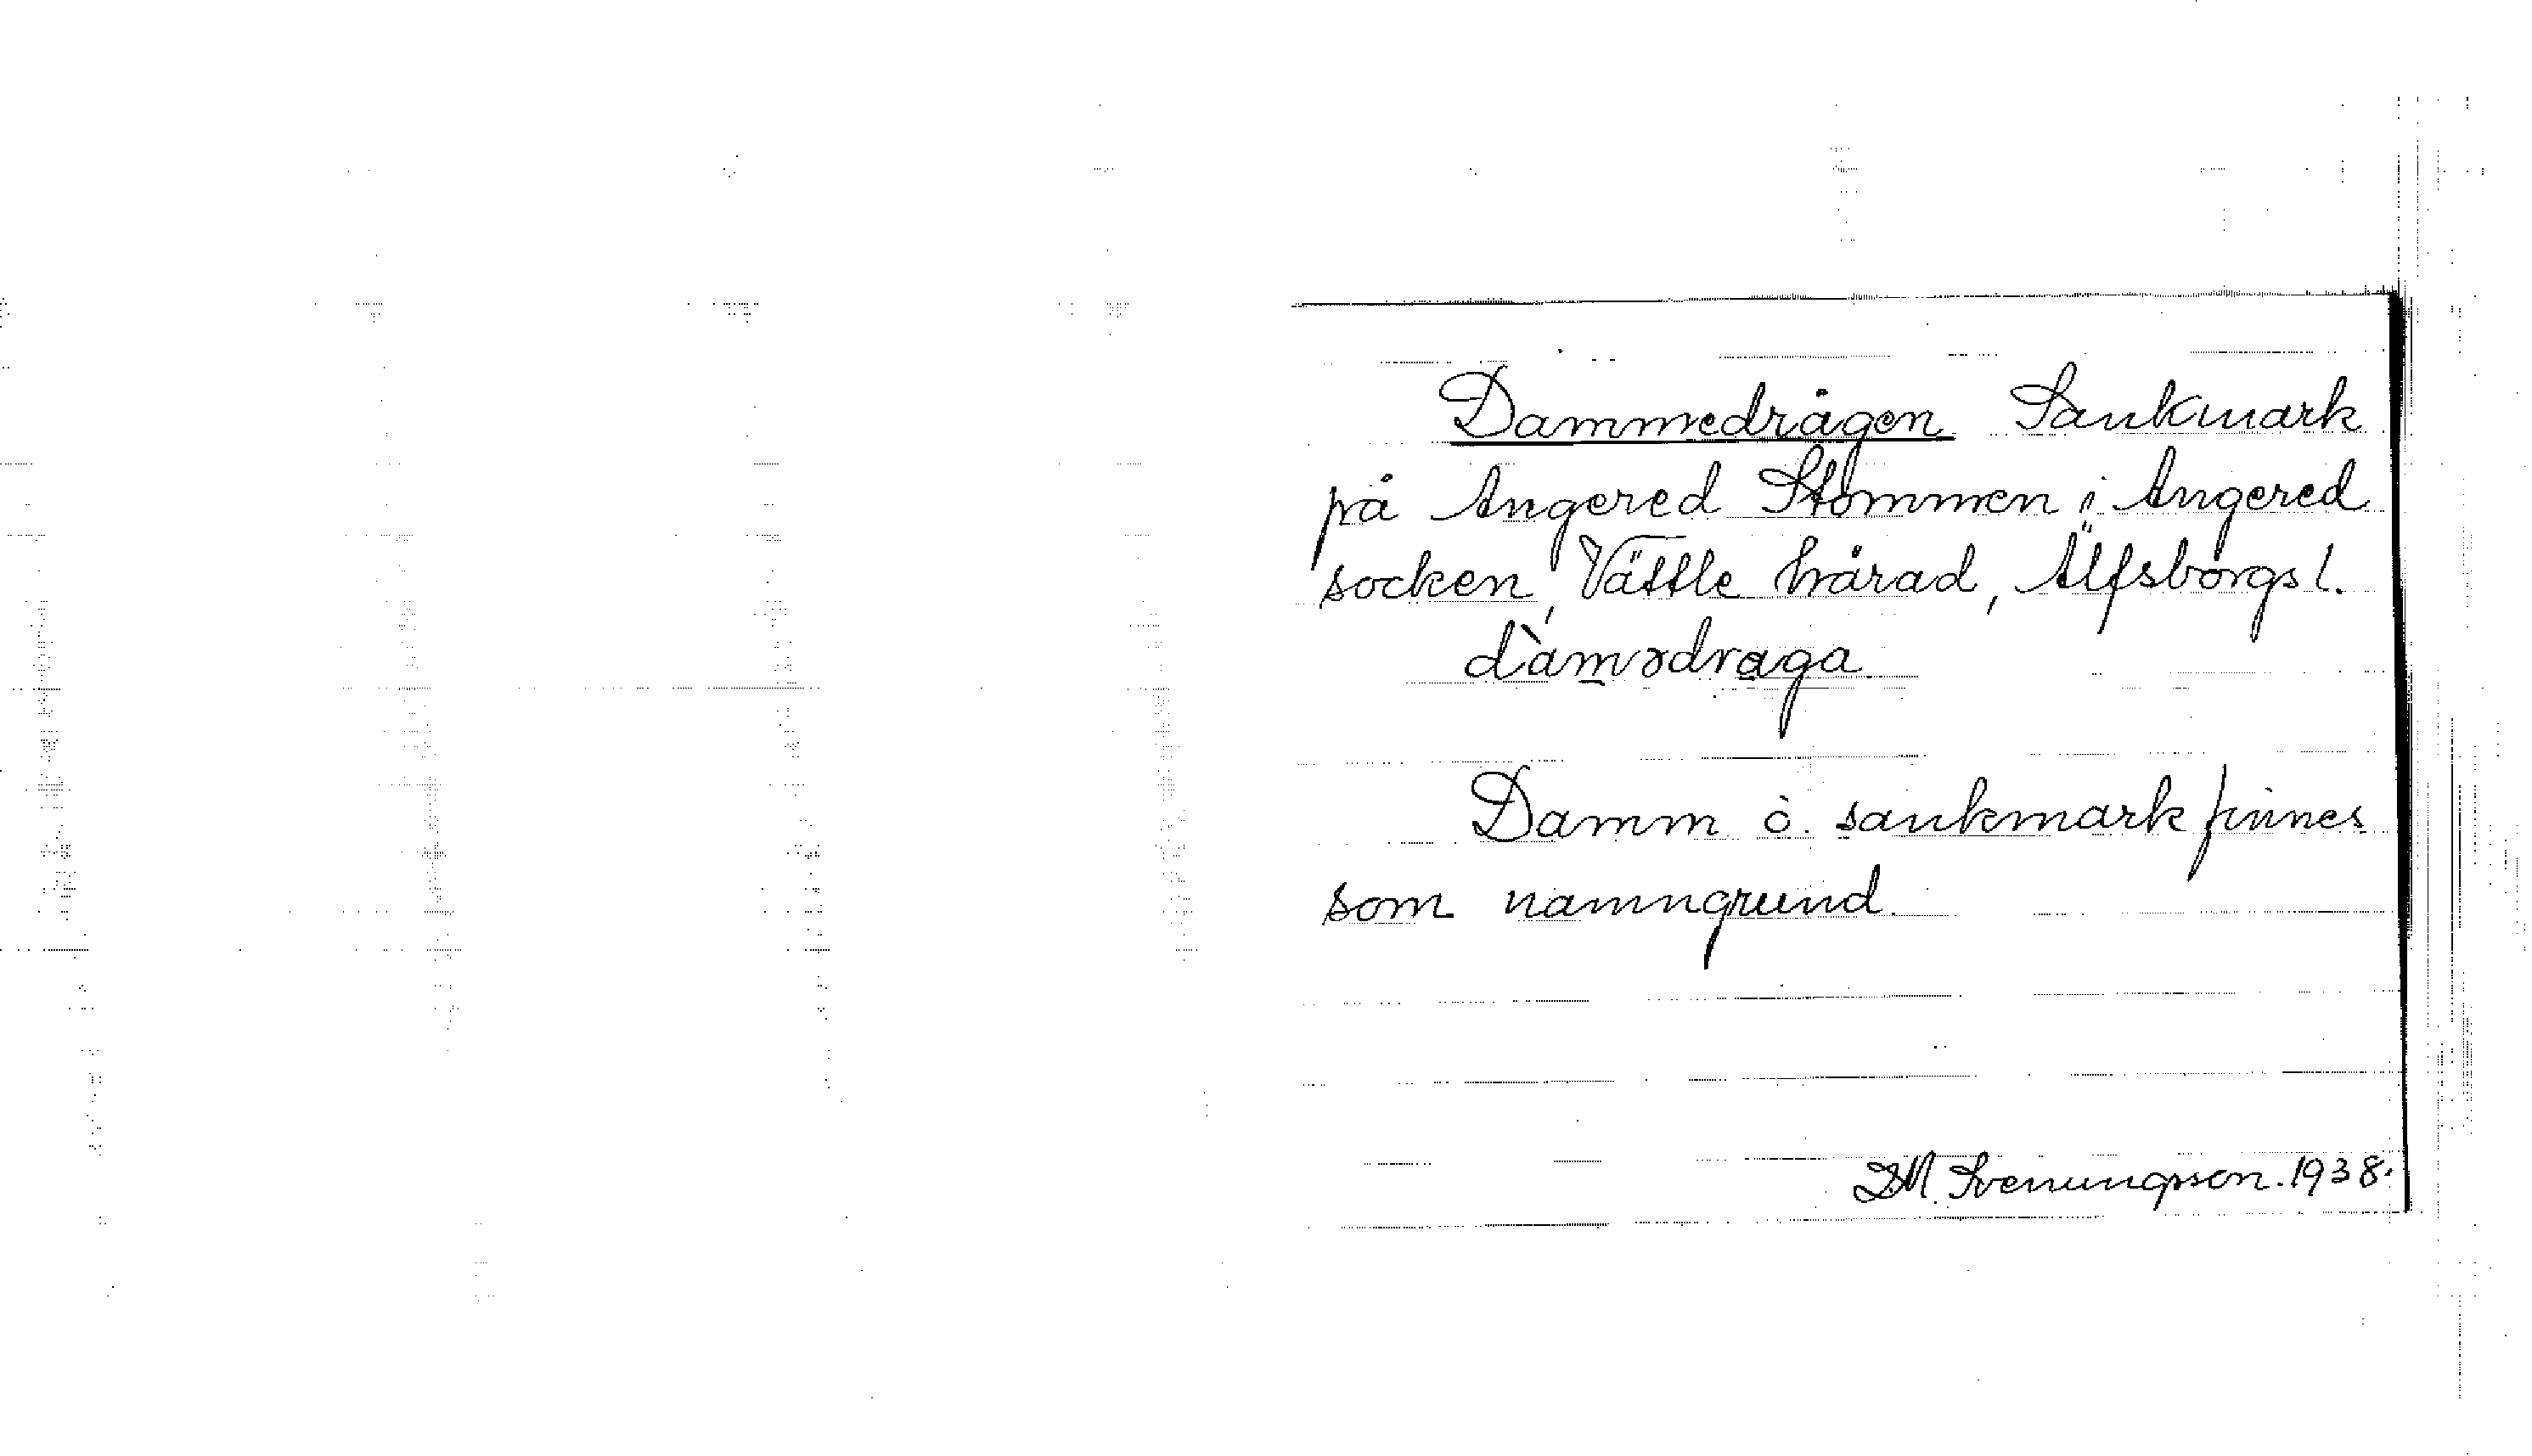 Dammedrågen Sankmark
på Angered Stommen i Angered
socken, Vättle härad, Älfsborgs l.
dàmədraga
Damm o. sankmark finnes
som namngrund.
Svenungsson. 1938.